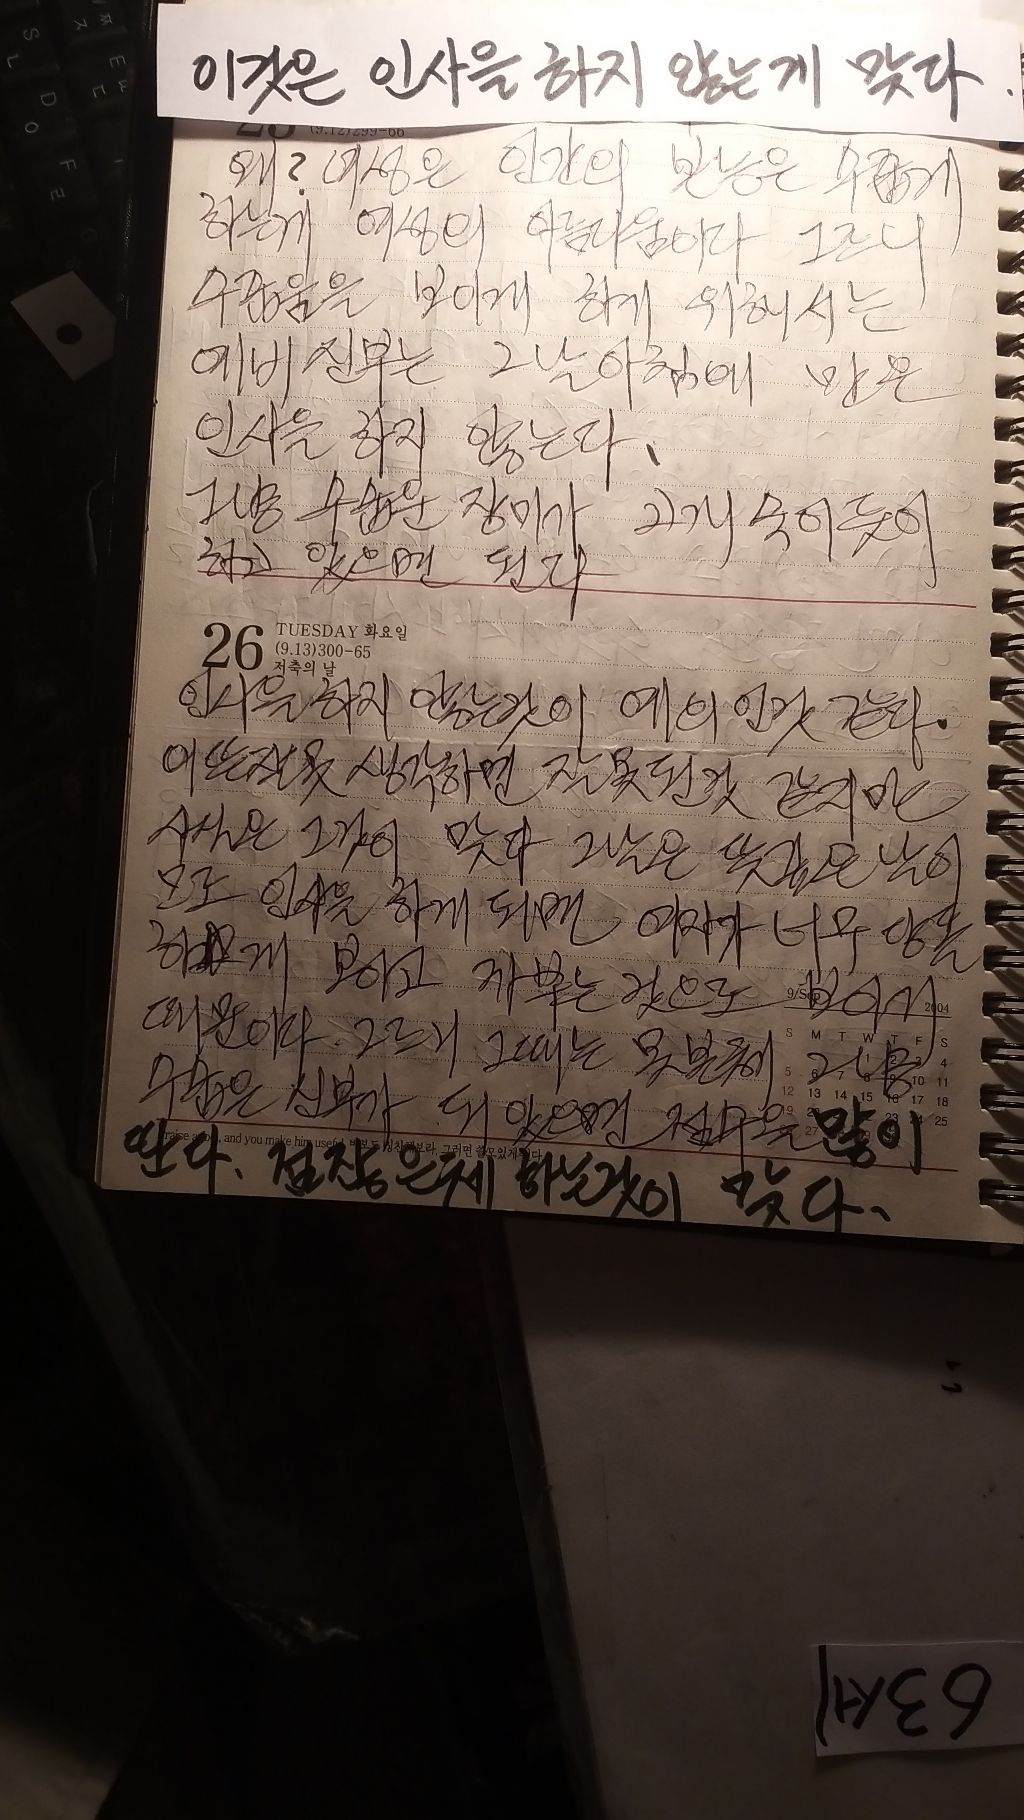 이것은 인사을 하지 않는게 맞다.
(9.12)299-66
왜? 여성은 인간의 본능은 수줍게
하는게 여성의 아름다움이다 그르니
수줍움을 보이게 하게 위해서는
예비신부는 그날아침에 만은
인사을 하지 않는다.
그냥 수줍은 장미가 고개 숙이듯이
하고 있으면 된다
26 TUESDAY 화요일
(9.13)300-65
저축의 날
인사을 하지 않는것이 예의 인것 같다.
생각하면 잘못된것 같지만
사실은 그것이 맞다 그날은
모도 인사을 하게 되면 여자가 너무
게 보이고 것으로 보이기
때문이다. 그르기 그때는 못본듯이 그냥
수줍은 신부가 되 있으면 점수을 많이
딴다. 점잔은체 하는것이 맞다.
9/Sep 2004
S M T W T F S
and you make him useful.
63세